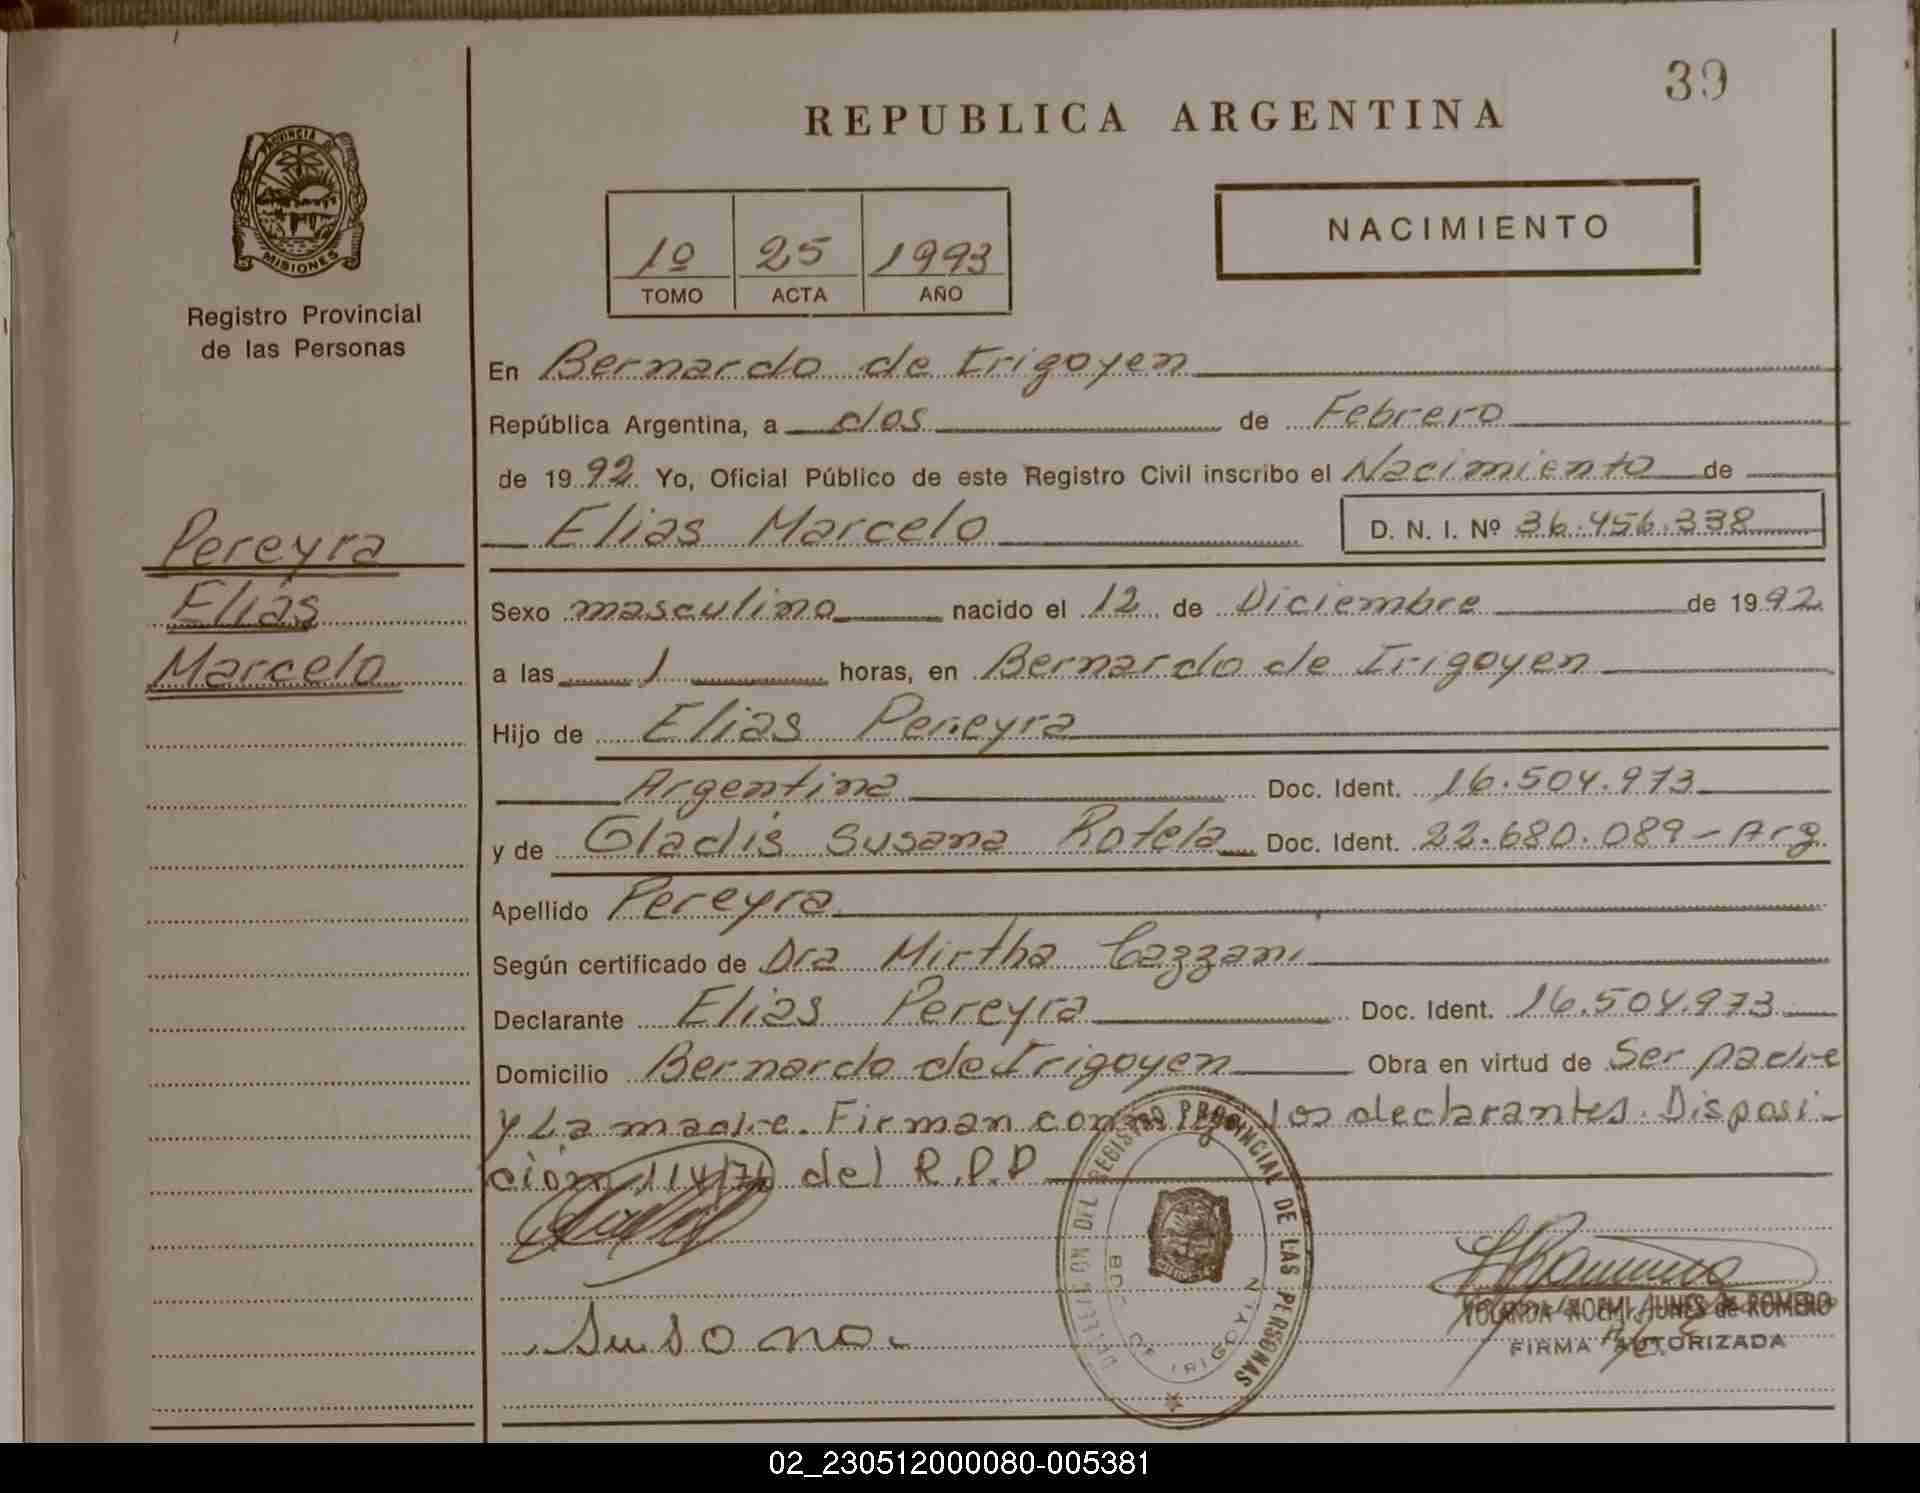 39
REPUBLICA ARGENTINA
PROVINCIA DE
MISIONES
Registro Provincial
de las Personas
NACIMIENTO
1º 25 1993
TOMO ACTA AÑO
En Bernardo de Irigoyen
República Argentina, a dos de Febrero
de 1992 Yo, Oficial Público de este Registro Civil inscribo el Nacimiento de
Elias Marcelo D. N. I. Nº 36.456.338
Pereyra
Elias
Marcelo
Sexo masculino nacido el 12 de Diciembre de 1992
a las 1 horas, en Bernardo de Irigoyen
Hijo de Elias Pereyra
Argentina Doc. Ident. 16.504.973
y de Gladis Susana Rotela Doc. Ident. 22.680.089 - Arg.
Apellido Pereyra
Según certificado de Dra Mirtha Cazzani
Declarante Elias Pereyra Doc. Ident. 16.504.973
Domicilio Bernardo de Irigoyen Obra en virtud de Ser padre
y La madre. Firman conmigo los declarantes. Disposi-
ción 114/71 del R.P.P
DEL REGISTRO PROVINCIAL DE LAS PERSONAS
BDO. DE IRIGOYEN
Susana
YOLANDA NOEMI de ROMERO
FIRMA AUTORIZADA
02_230512000080-005381